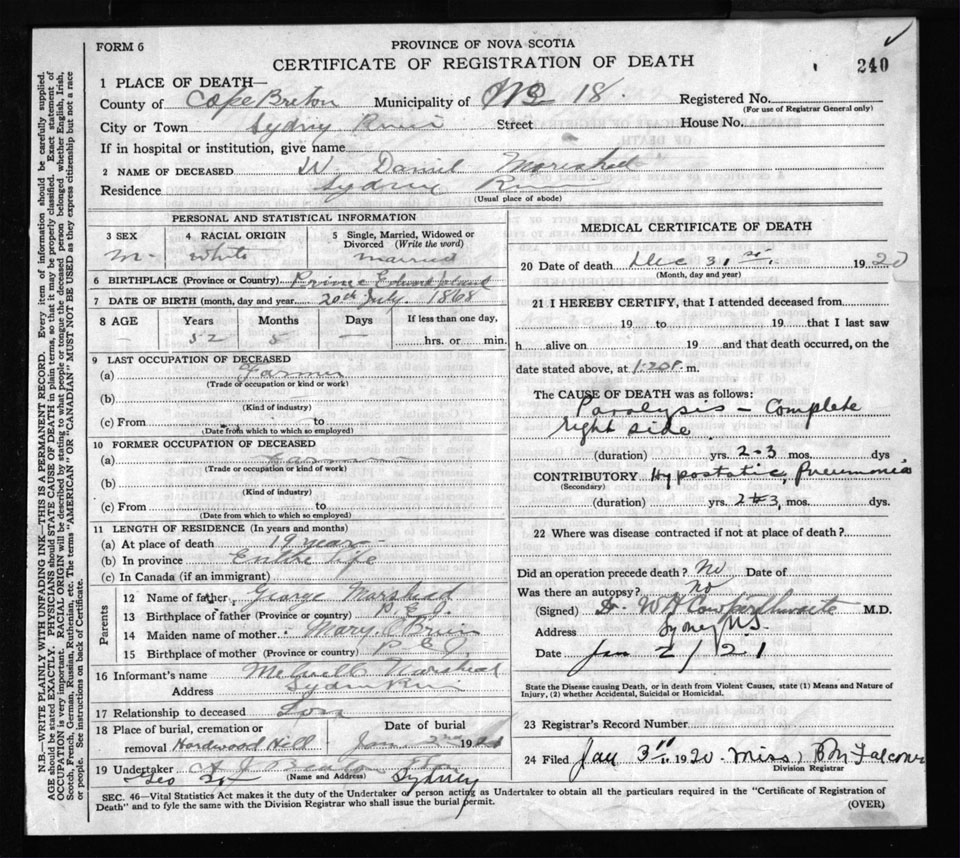 FORM 6
PROVINCE OF NOVA SCOTIA
CERTIFICATE OF REGISTRATION OF DEATH
240
1 PLACE OF DEATH—
County of Cape Breton Municipality of 18. Registered No.
(For use of Registrar General only)
City or Town Sydney River Street House No.
If in hospital or institution, give name
2 NAME OF DECEASED W Daniel
Residence Sydney River
(Usual place of abode)
PERSONAL AND STATISTICAL INFORMATION
3 SEX 4 RACIAL ORIGIN 5 Single, Married, Widowed or Divorced (Write the word)
M. White married
6 BIRTHPLACE (Province or Country) Prince Edward Island
7 DATE OF BIRTH (month, day and year) 20th July. 1868
8 AGE Years Months Days If less than one day,
52 5 — hrs. or min.
9 LAST OCCUPATION OF DECEASED
(a) Farmer
(Trade or occupation or kind or work)
(b)
(Kind of industry)
(c) From to
(Date from which to which so employed)
10 FORMER OCCUPATION OF DECEASED
(a)
(Trade or occupation or kind of work)
(b)
(Kind of industry)
(c) From to
(Date from which to which so employed)
11 LENGTH OF RESIDENCE (In years and months)
(a) At place of death 19 years
(b) In province Entire life
(c) In Canada (if an immigrant)
Parents
12 Name of father George
13 Birthplace of father (Province or country) P.E.I.
14 Maiden name of mother Mary
15 Birthplace of mother (Province or country) P E I
16 Informant's name
Address Sydney River
17 Relationship to deceased Son
18 Place of burial, cremation or Date of burial
removal Hardwood Hill Jan 2nd 1921
19 Undertaker A J Beaton
(Name and Address) Sydney
MEDICAL CERTIFICATE OF DEATH
20 Date of death Dec 31st 1920
(Month, day and year)
21 I HEREBY CERTIFY, that I attended deceased from
19 to 19 that I last saw
h alive on 19 and that death occurred, on the
date stated above, at 1.20P. m.
The CAUSE OF DEATH was as follows:
Paralysis — Complete
right side
(duration) yrs. 2-3 mos. dys
CONTRIBUTORY Hypostatic Pneumonia
(Secondary)
(duration) yrs. mos. dys.
22 Where was disease contracted if not at place of death?
Did an operation precede death? No Date of
Was there an autopsy? No
(Signed) Dr. M.D.
Address Sydney N.S.
Date Jan 2/21
State the Disease causing Death, or in death from Violent Causes, state (1) Means and Nature of
Injury, (2) whether Accidental, Suicidal or Homicidal.
23 Registrar's Record Number
24 Filed Jan 3rd 1920 Miss B M Falconer
Division Registrar
SEC. 46—Vital Statistics Act makes it the duty of the Undertaker or person acting as Undertaker to obtain all the particulars required in the "Certificate of Registration of
Death" and to fyle the same with the Division Registrar who shall issue the burial permit.
(OVER)
N.B.—WRITE PLAINLY WITH UNFADING INK—THIS IS A PERMANENT RECORD. Every item of information should be carefully supplied.
AGE should be stated EXACTLY. PHYSICIANS should STATE CAUSE OF DEATH in plain terms, so that it may be properly classified. Exact statement of
OCCUPATION is very important. RACIAL ORIGIN will be described by stating to what people or tongue the deceased person belonged, whether English, Irish,
Scotch, French, German, Russian, Ruthenian, etc. The terms "AMERICAN" OR "CANADIAN" MUST NOT BE USED as they express citizenship but not a race
or people. See instructions on back of Certificate.